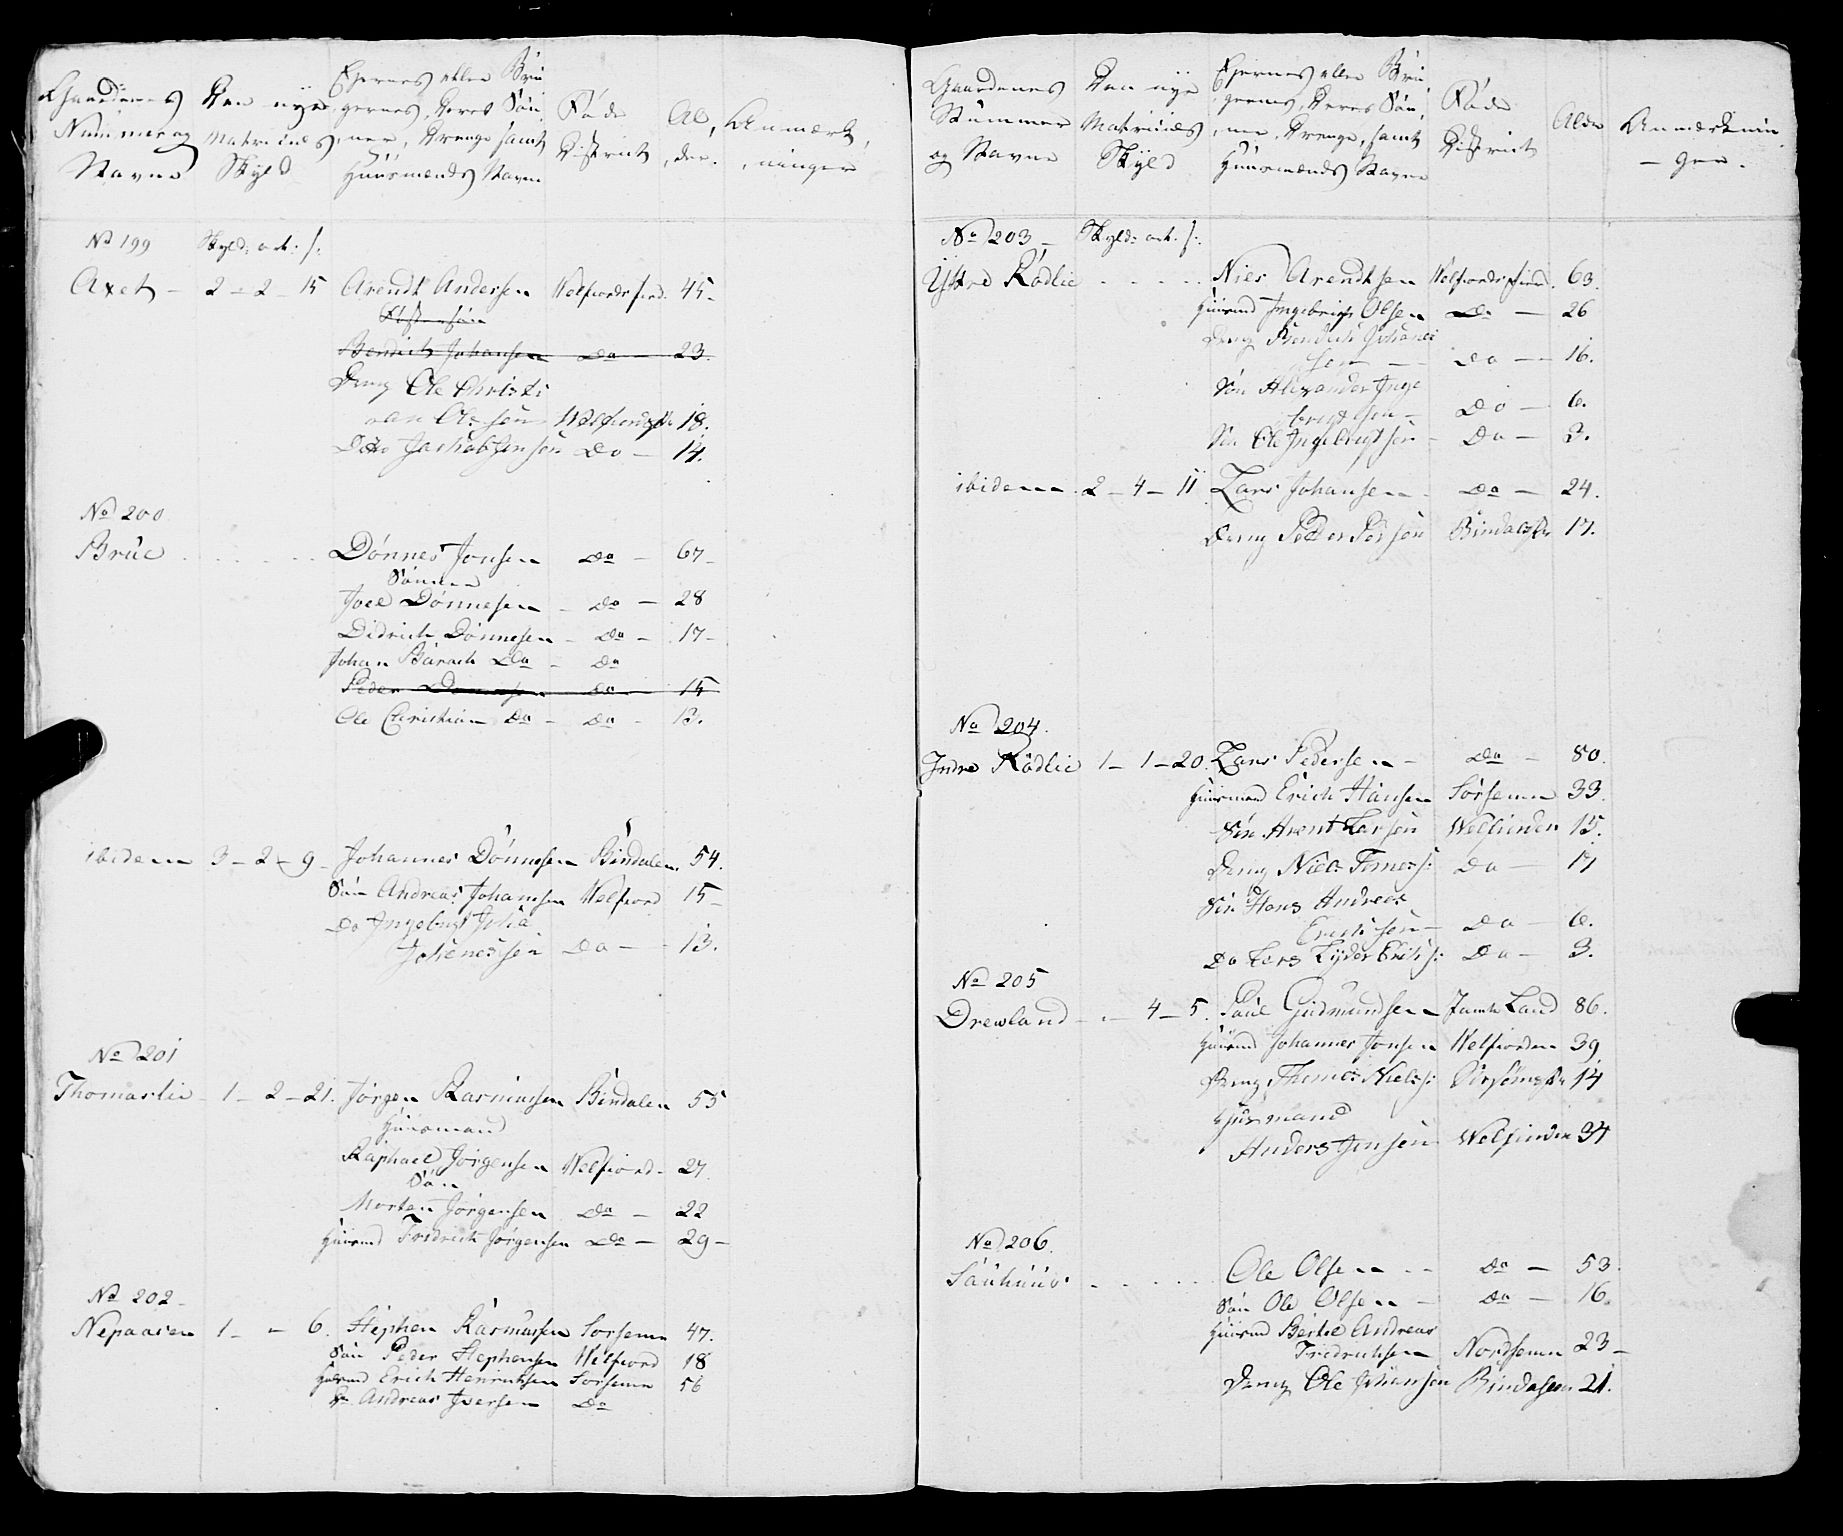 Gaardenes Nummer og Navne | Den nÿe Matriculs Skyld | Ejernes eller Brugernes, deres Sönner, Drenge samt Huusmænds Navne | Föde District | Alder. | Anmærkninger
No 199 Skyld: ort. s:
Axet - 2 - 2 - 15 Arendt Andersen Welfiordsfierd. 45 -
Bendich Johansen Do - 23.
Dreng Ole Christi
an Olesen Welfiordsf. 18.
Ditto Jachob Jensen Do - 14.
No 200
Brüe Dónnes Jonsen Do - 67 -
Sönner
Joel Dónnesen - Do - 28
Didrich Dónnesen - Do - 17 -
Johan Barach Do - Do
Peder Dónnesen Do - 15
Ole Christian Do - Do - 13.
ibidem 3 - 2 - 9 - Johannes Dónnesen Bindalen. 54.
Sön Andreas Johansen Welfiord 15 -
Do Ingebrigt Joha
Johanessen Do - - 13.
No 201
Thomaslie - 1 - 2 - 21. Jörgen Rasmussen Bindalen 55
Huusmand
Raphael Jörgensen Welfiord - 27.
Sön
Morten Jörgensen Do - 22
Huusmd Fridrich Jörgensen Do - 29 -
No 202 -
Nepaasen 1 - - 6. Stephen Rasmussen Sorsemn 47.
Sön Peder Stephensen Welfiord 18
Huusmd Erich Henrichsen Sorsemn 56
Do Andreas Iversen Do
Gaardenes Nummer og Navne | Den nÿe Matriculs Skÿld | Ejernes eller Brugernes, Deres Sönner, Drenge, samt Huusmænds Navne | Föde District | Alder | Anmærkninger.
No 203 - Skyld: ort. s:
Ÿttre Rödlie Niels Arendtsen Welfiordsfierd. 63.
Huusmd Ingebrigt Olsen Do - 26
Dreng Bendich Johanes
sen - Do - 16.
Sön Alexander Inge
brigtsen - Do - 6.
Sön Ole Ingebrigtsen - Do - 3.
ibidem 2 - 4 - 11 Lars Johansen - Do - 24.
Dreng Peder Persen Bindalsf. 17.
No 204.
Indre Rödlie 1 - 1 - 20. Lars Pedersen - Do - 80.
Huusmand Erich Hansen Sorsemn 33.
Sön Arent Larsen Welfiorden 15.
Dreng Niels Tomess: Do - 17
Sön Hans Andreas
Erichsen - Do - 6.
Do Lars Lyder Erichs: Do - 3.
No 205
Drewland - . - 4 - 5. Paul Gudmundsen Jamteland 86.
Huusmd Johannes Jonsen Welfiorden 39
Dreng Thomas Nielss: 14
Huusmand
Anders Jensen Welfiorden 34
No 206.
Sauhuus Ole Olsen - - Do - 53.
Sön Ole Olsen - Do - 16.
Huusmd Bertel Andreas
Fredrichsen Nordsemn 23 -
Dreng Ole Johansen Bindalen 21.